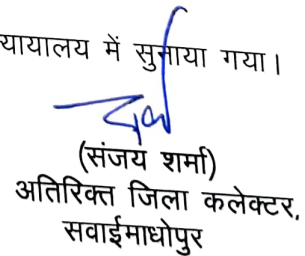 यायालय में सुनाया गया।
(संजय शर्मा)
अतिरिक्त जिला कलेक्टर,
सवाईमाधोपुर